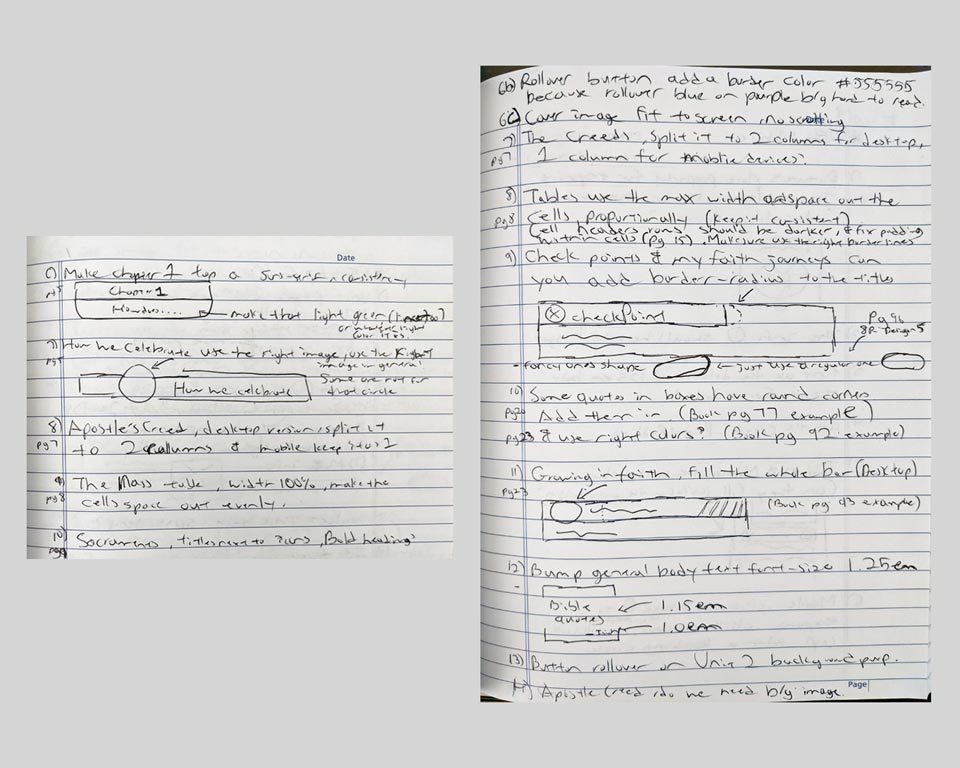 Date
6) Make chapter 1 top a Sans-serif, consistency
pg5
Chapter 1
Howdoes....
make that light green (
or
color it is.
7) How we Celebrate use the right image, use the Right
pg5
image in general
Some are not for
that circle
How we celebrate
8) Apostle's Creed, desktop version, split it
pg7 to 2 collumns & mobile keep it to 1
9) The Mass table, width 100%, make the
pg8 cells space out evenly.
10) Sacraments, titles next to icons, Bold headings
pg9
6b) Rollover button add a border color #555555
because rollover blue on purple b/g hard to read.
6c) Cover image fit to screen, no scrolling
7) The Creeds, split it to 2 columns for desktop,
pg7 1 column for mobile devices.
8) Tables use the max width and space out the
pg8 Cells, proportionally (keep it consistent)
Cell headers rows should be darker, & fix padding
within cells (pg 15). Make sure use the right border lines
9) Check points & my faith journeys can
you add border-radius to the titles
checkpoint
Pg 96
BR-Design5
- fancy ones shape
just use a regular one
10) Some quotes in boxes have round corners
pg20 Add them in (Book pg 77 example)
pg23 & use right colors? (Book pg 92 example)
11) Growing in faith, fill the whole bar (Desktop)
pg23
(Book pg 93 example)
12) Bump general body text font-size 1.25em
Bible
quotes
1.15em
1.0em
13) Button rollover on Unit 2 background purp.
14) Apostle Creed, do we need b/g image.
Page